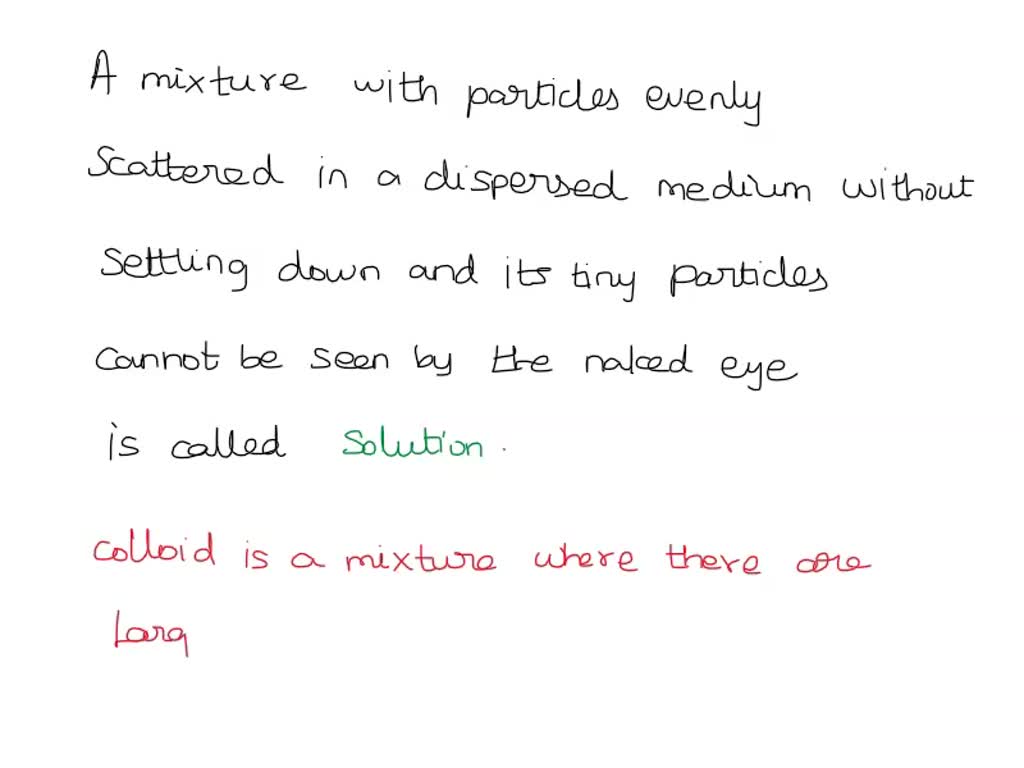 A mixture with particles evenly
Scattered in a dispersed medium without
Settling down and its tiny particles
cannot be seen by the naked eye
is called Solution.
colloid is a mixture where there are
Larg